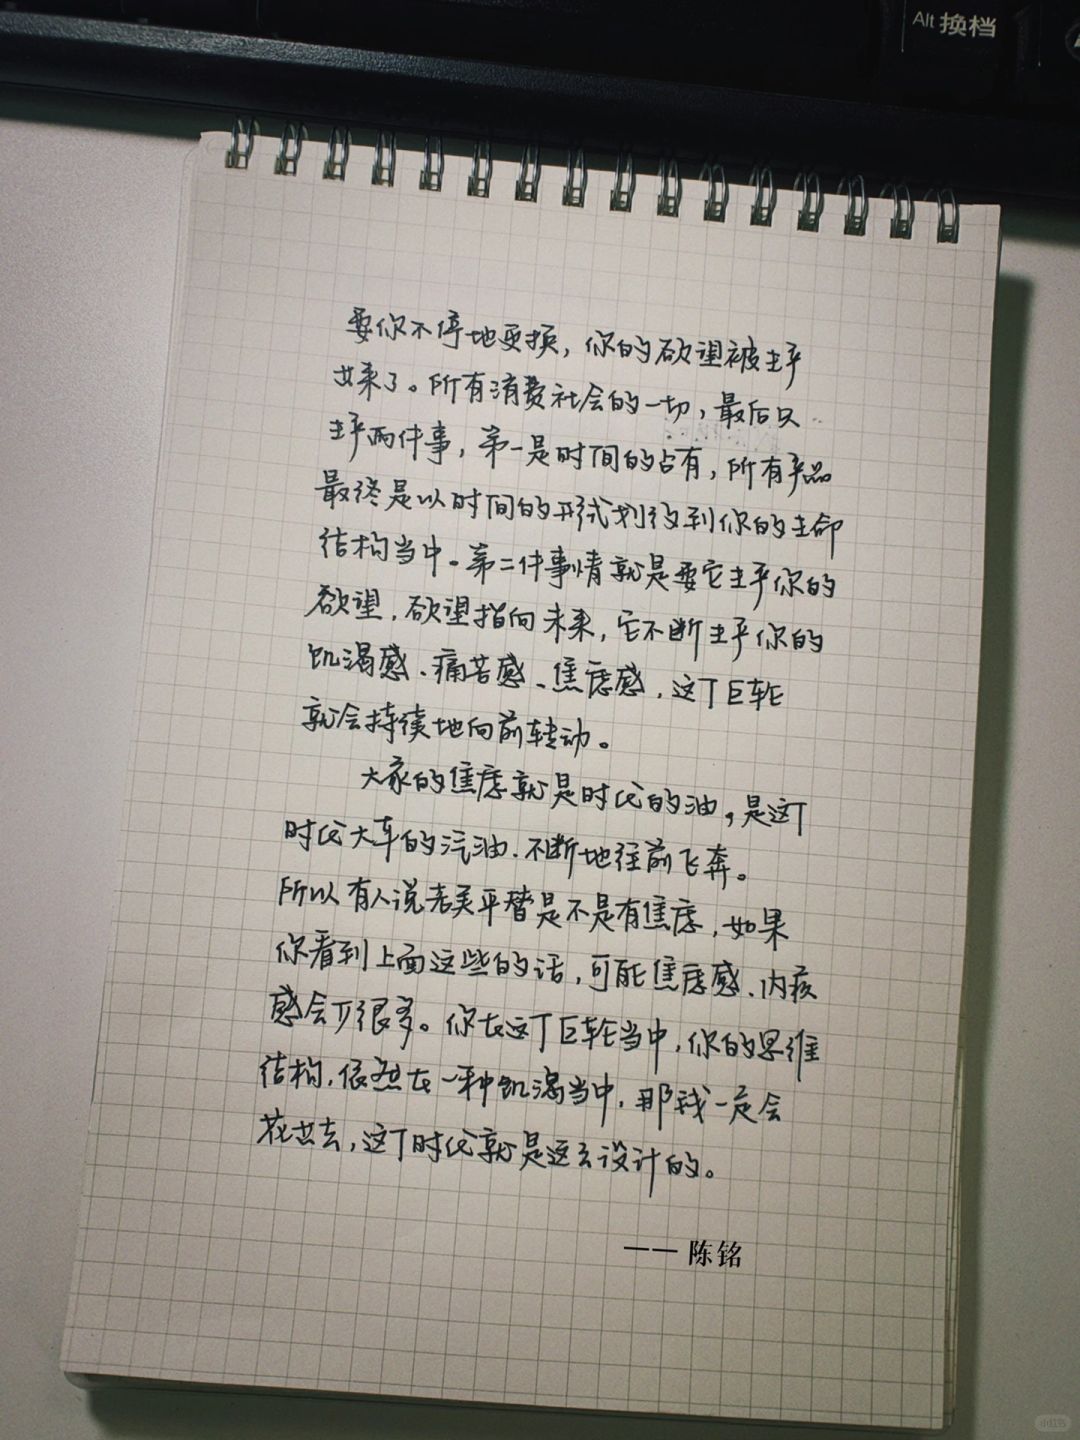 Alt 换档
要你不停地更换，你的欲望被生产
出来了。所有消费社会的一切，最后只
生产两件事，第一是时间的占有，所有产品
最终是以时间的形式划役到你的生命
结构当中。第二件事情就是要它生产你的
欲望，欲望指向未来，它不断生产你的
饥渴感、痛苦感、焦虑感，这个巨轮
就会持续地向前转动。
大家的焦虑就是时代的油，是这个
时代大车的汽油，不断地往前飞奔。
所以有人说老美平替是不是有焦虑，如果
你看到上面这些的话，可能焦虑感、内疚
感会少很多。你在这个巨轮当中，你的思维
结构，依然在一种饥渴当中，那钱一定会
花出去，这个时代就是这么设计的。
—— 陈铭
小红书